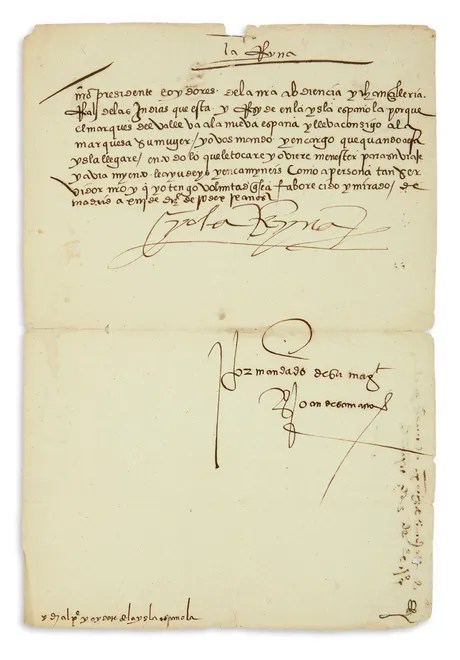 la Reyna
nro presidente e oydores de la nra abdiencia y changilleria
Real de las Indias que esta y Resyde en la ysla española porque
el marques del valle va a la nueva españa y lleva consigo a la
marquesa su muger / yo vos mando y encargo que quando a esa
ysla llegare / en todo lo que le tocare y oviere menester para su viaje
y avia myento le ayudeys y encamyneis Como a persona tan Ser
vidor nro y q yo tengo voluntad q sea faborecido y mirado / de
madrid a de de años
yo la Reyna
Por mandado de su magt
Joan de Samano
al pe y oydores de la ysla española